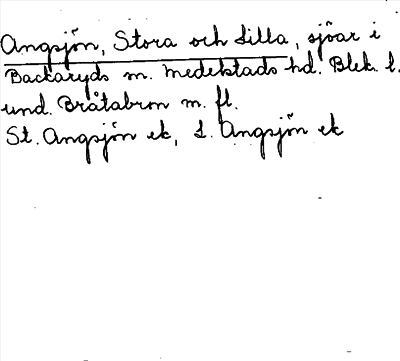 Angsjön, Stora och Lilla, sjöar i
Backaryds sn. Medelstads hd. Blek. l.
und. Bråtabron m. fl.
St. Angsjön ek, L. Angsjön ek